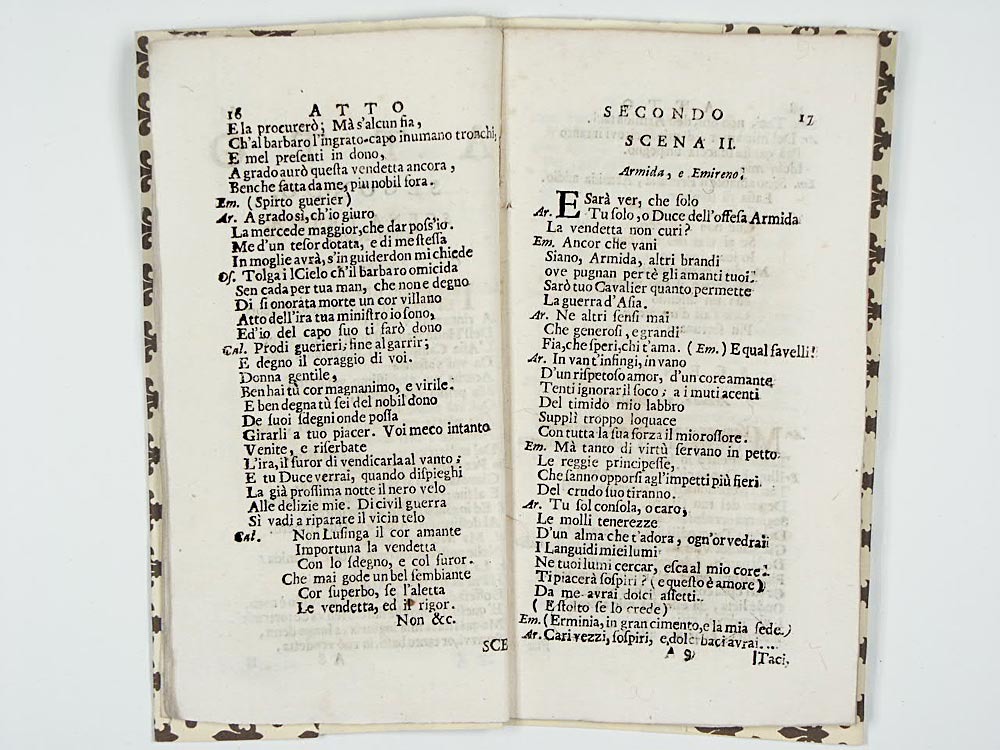 16 ATTO
E la procurerò; Mà s'alcun fia,
Ch'al barbaro l'ingrato-capo inumano tronchi,
E mel presenti in dono,
A grado aurò questa vendetta ancora,
Benche fatta da me, piu nobil fora.
Em. (Spirto guerier)
Ar. A grado sì, ch'io giuro
La mercede maggior, che dar poss'io.
Me d'un tesor dotata, e di me stessa
In moglie avrà, s'in guiderdon mi chiede
Os. Tolga il Cielo ch'il barbaro omicida
Sen cada per tua man, che non e degno
Di sì onorata morte un cor villano
Atto dell'ira tua ministro io sono,
Ed'io del capo suo ti farò dono
Cal. Prodi guerieri; fine al garrir;
E degno il coraggio di voi.
Donna gentile,
Ben hai tù cor magnanimo, e virile:
E ben degna tù sei del nobil dono
De suoi sdegni onde possa
Girarli a tuo piacer. Voi meco intanto
Venite, e riserbate
L'ira, il furor di vendicarla al vanto;
E tu Duce verrai, quando dispieghi
La già prossima notte il nero velo
Alle delizie mie. Di civil guerra
Sì vadi a riparare il vicin telo
Cal. Non Lusinga il cor amante
Importuna la vendetta
Con lo sdegno, e col furor.
Che mai gode un bel sembiante
Cor superbo, se l'aletta
Le vendetta, ed il rigor.
Non &c.
SCE
SECONDO 17
SCENA II.
Armida, e Emireno.
ESarà ver, che solo
Ar. Tu solo, o Duce dell'offesa Armida
La vendetta non curi?
Em. Ancor che vani
Siano, Armida, altri brandi
ove pugnan per tè gli amanti tuoi:
Sarò tuo Cavalier quanto permette
La guerra d'Asia.
Ar. Ne altri sensi mai
Che generosi, e grandi
Fia, che speri, chi t'ama. (Em.) E qual favelli!
Ar. In van t'infingi, in vano
D'un rispetoso amor, d'un core amante
Tenti ignorar il foco; a i muti acenti
Del timido mio labbro
Supplì troppo loquace
Con tutta la sua forza il mio rossore.
Em. Mà tanto di virtù servano in petto
Le reggie principesse,
Che sanno opporsi agl'impetti più fieri
Del crudo suo tiranno.
Ar. Tu sol consola, o caro,
Le molli tenerezze
D'un alma che t'adora, ogn'or vedrai
I Languidi miei lumi
Ne tuoi lumi cercar, esca al mio core:
Ti piacerà sospiri? (e questo è amore)
Da me avrai dolci affetti.
(E stolto se lo crede)
Em. (Erminia, in gran cimento, e la mia fede.)
Ar. Cari vezzi, sospiri, e, dolci baci avrai...
A 9 Taci,